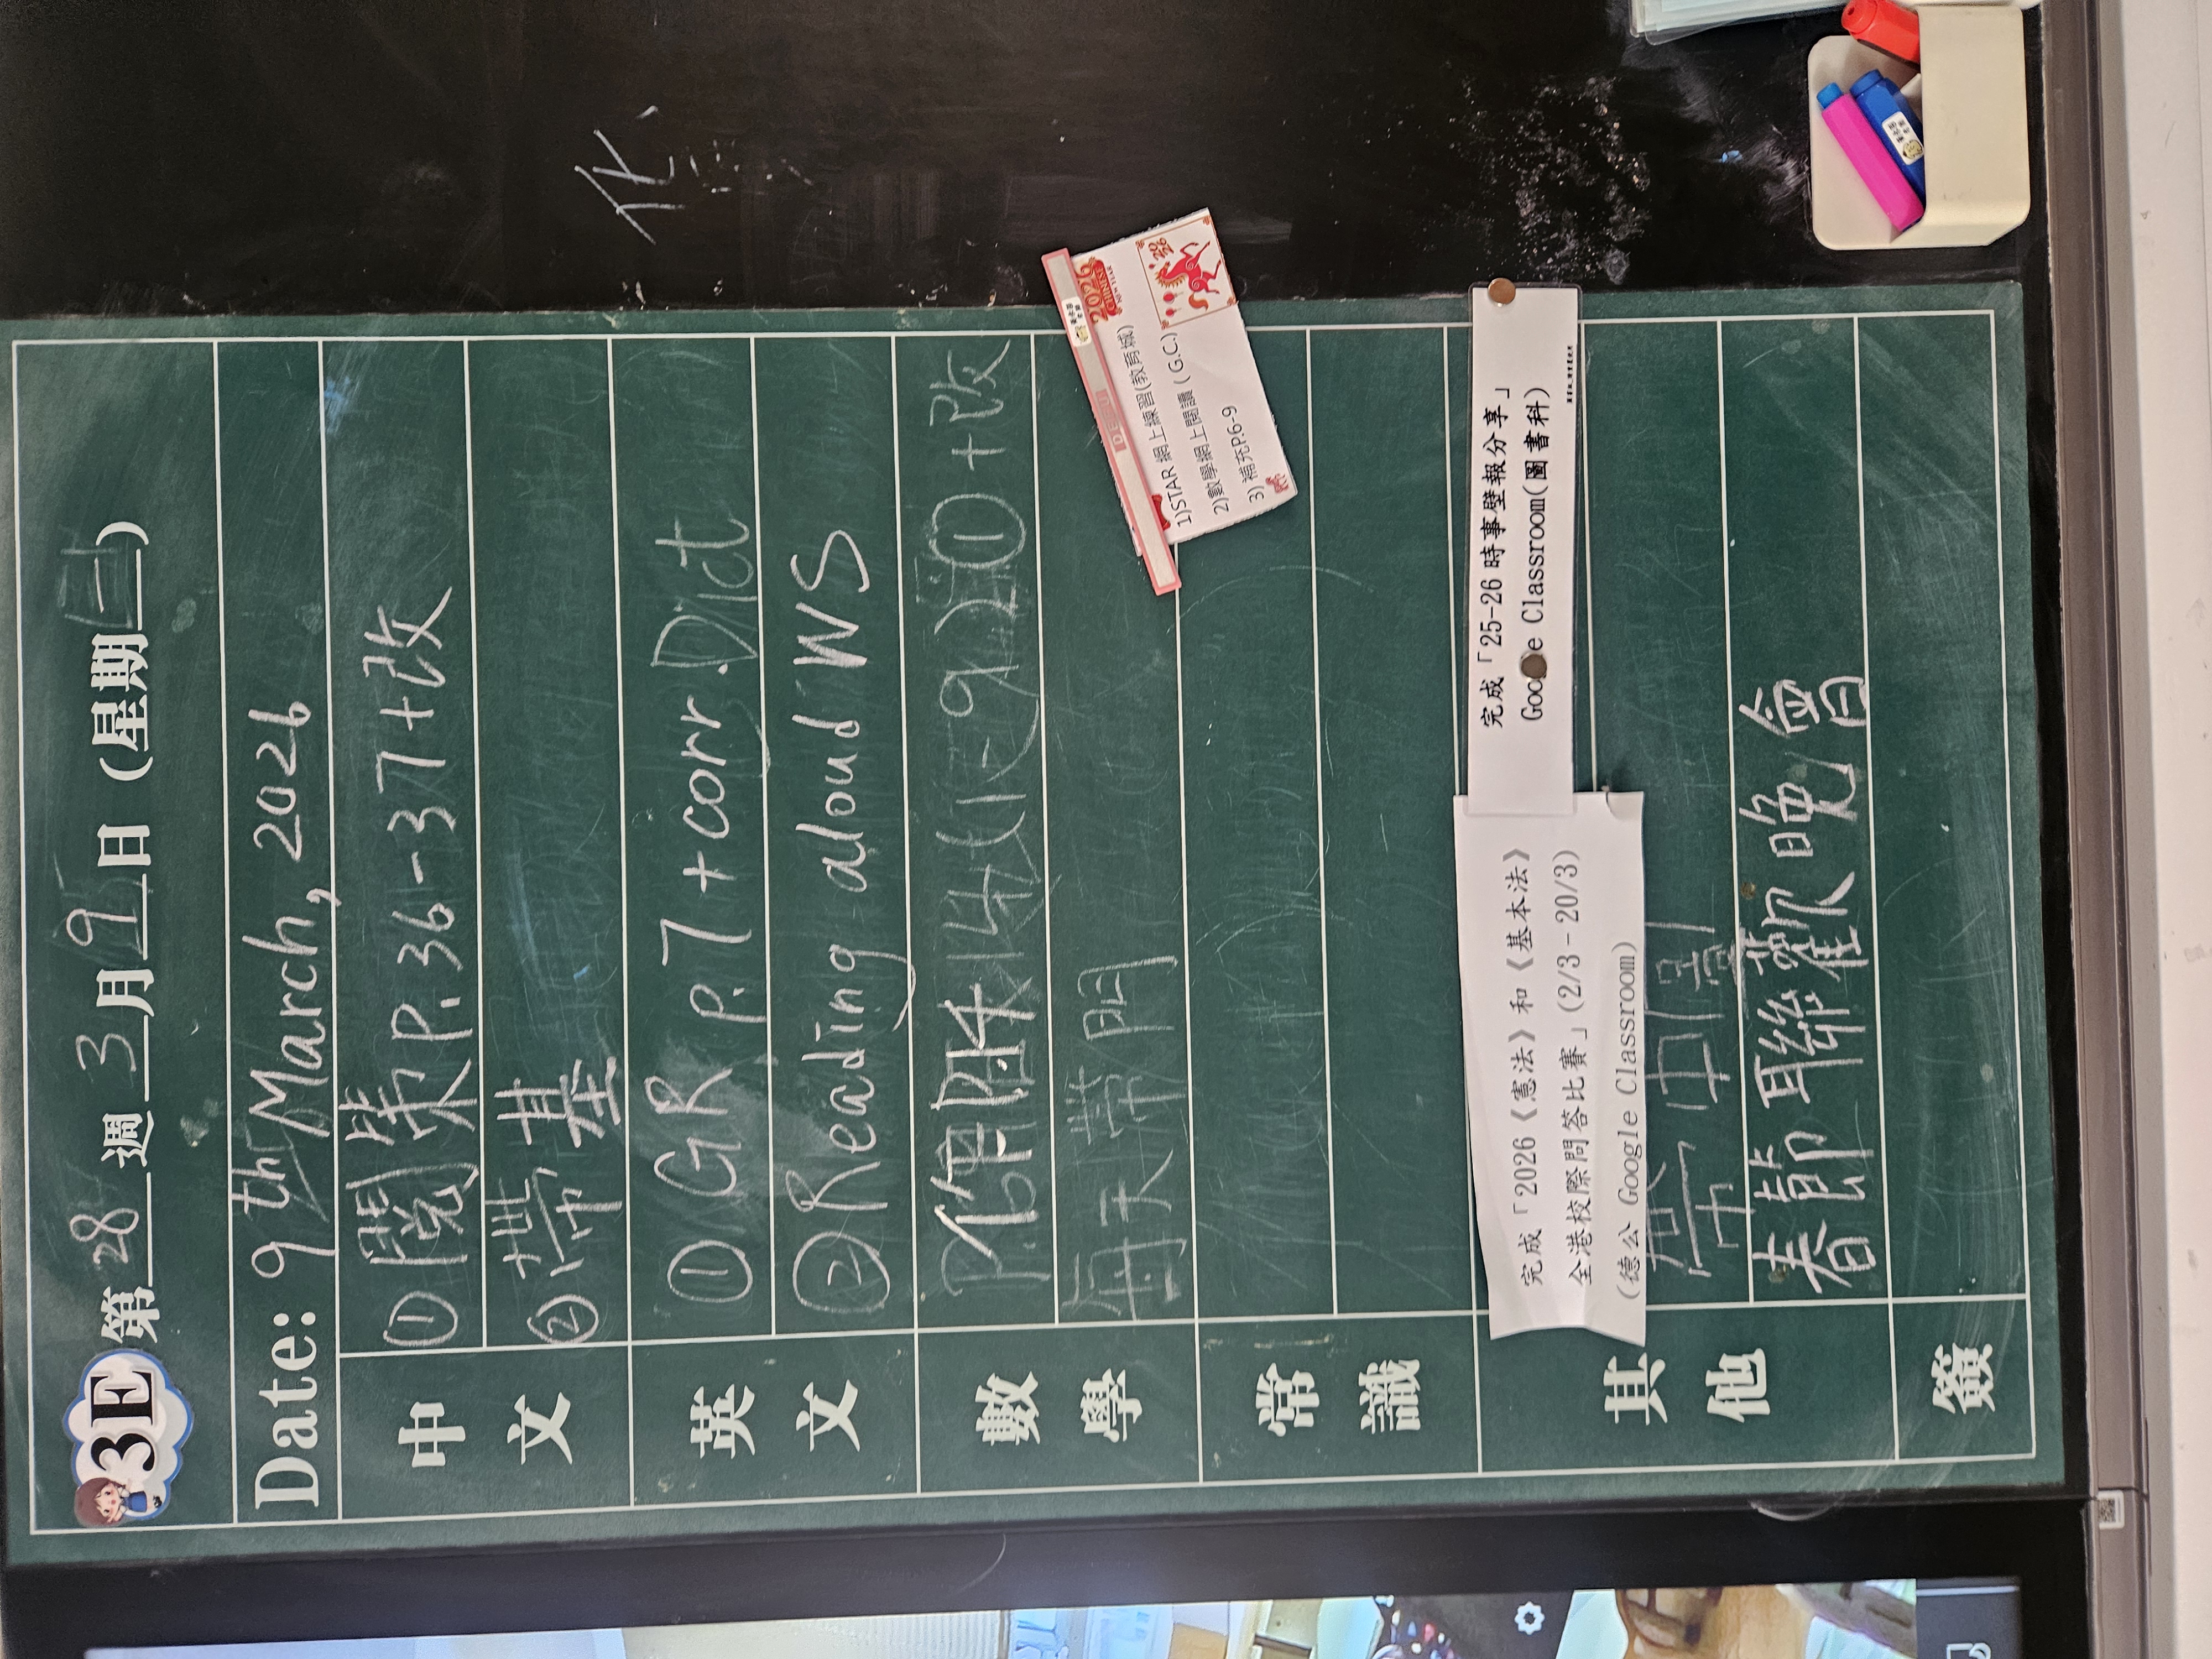 3E 第 28 週 3 月 9 日 (星期 一)
Date: 9th March, 2026
中文
① 閱策P.36-37+改
② 帶基
英文
① GR p.7 + corr. Dict
② Reading aloud WS
數學
(1-9) +改
常識
1)STAR 網上練習(教育城)
2)數學網上閱讀 ( G.C.)
3) 補充P.6-9
2026
CHINESE
NEW YEAR
其他
完成「2026《憲法》和《基本法》
全港校際問答比賽」(2/3-20/3)
(德公 Google Classroom)
完成「25-26 時事壁報分享」
Google Classroom(圖書科)
春節聯歡晚會
簽